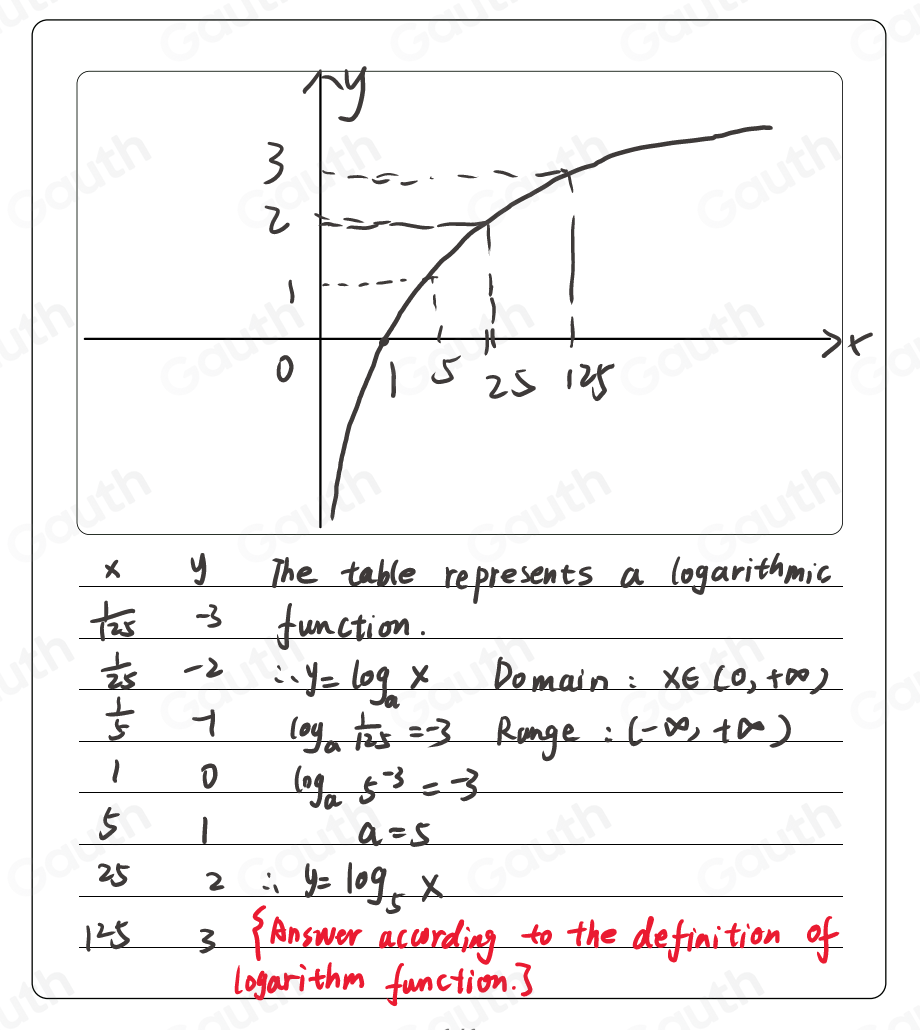 y
3
2
1
0 1 5 25 125 x
x y The table represents a logarithmic
1/125 -3 function.
1/25 -2 ∴ y = log_a x Domain : x∈(0, +∞)
1/5 -1 log_a 1/125 = -3 Range : (-∞, +∞)
1 0 log_a 5^-3 = -3
5 1 a = 5
25 2 ∴ y = log_5 x
125 3 {Answer according to the definition of
logarithm function.}
Gauth